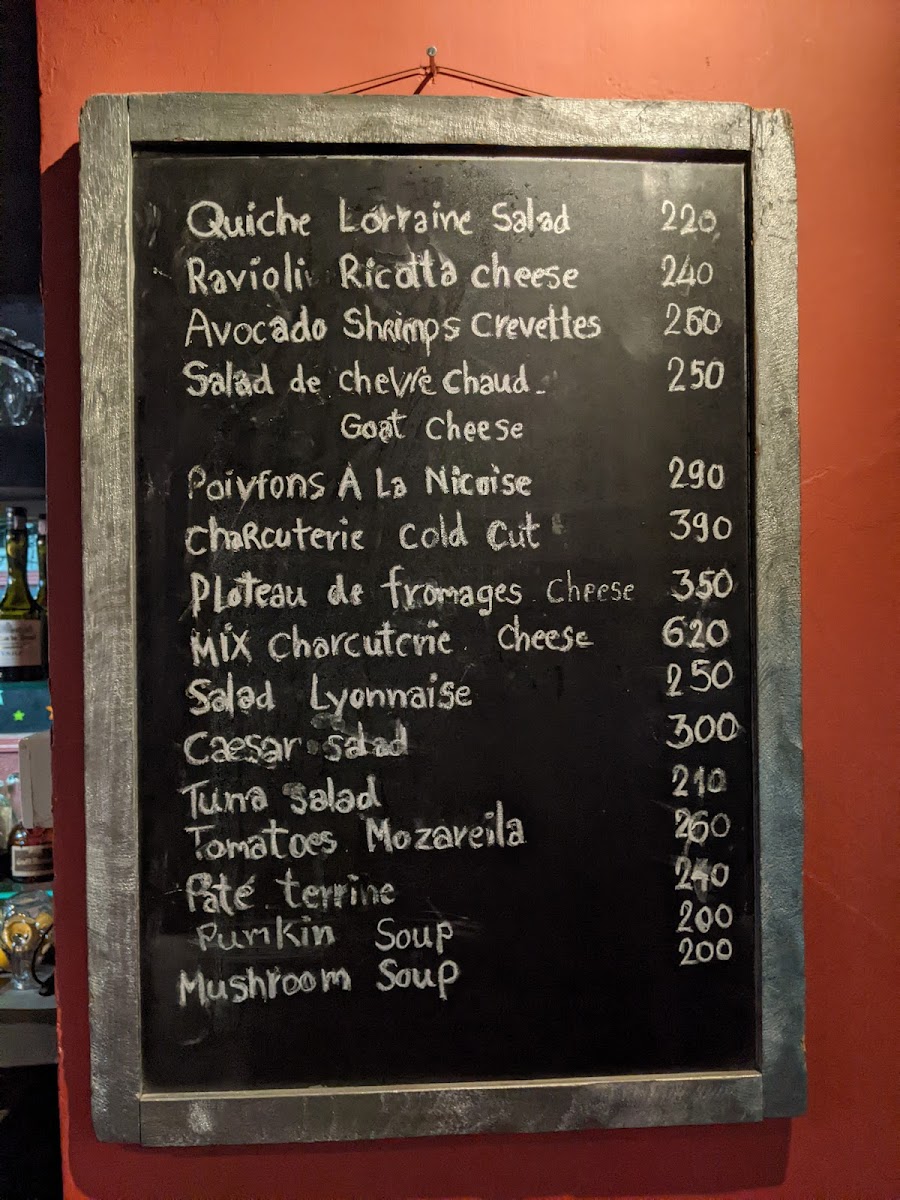 Quiche Lorraine Salad 220
Ravioli Ricotta cheese 240
Avocado Shrimps Crevettes 260
Salad de chevre chaud 250
Goat Cheese
Poivrons A La Nicoise 290
Charcuterie Cold Cut 390
Plateau de fromages Cheese 350
MIX Charcuterie Cheese 620
Salad Lyonnaise 250
Caesar salad 300
Tuna salad 210
Tomatoes Mozareila 260
Pâté terrine 240
Pumkin Soup 200
Mushroom Soup 200